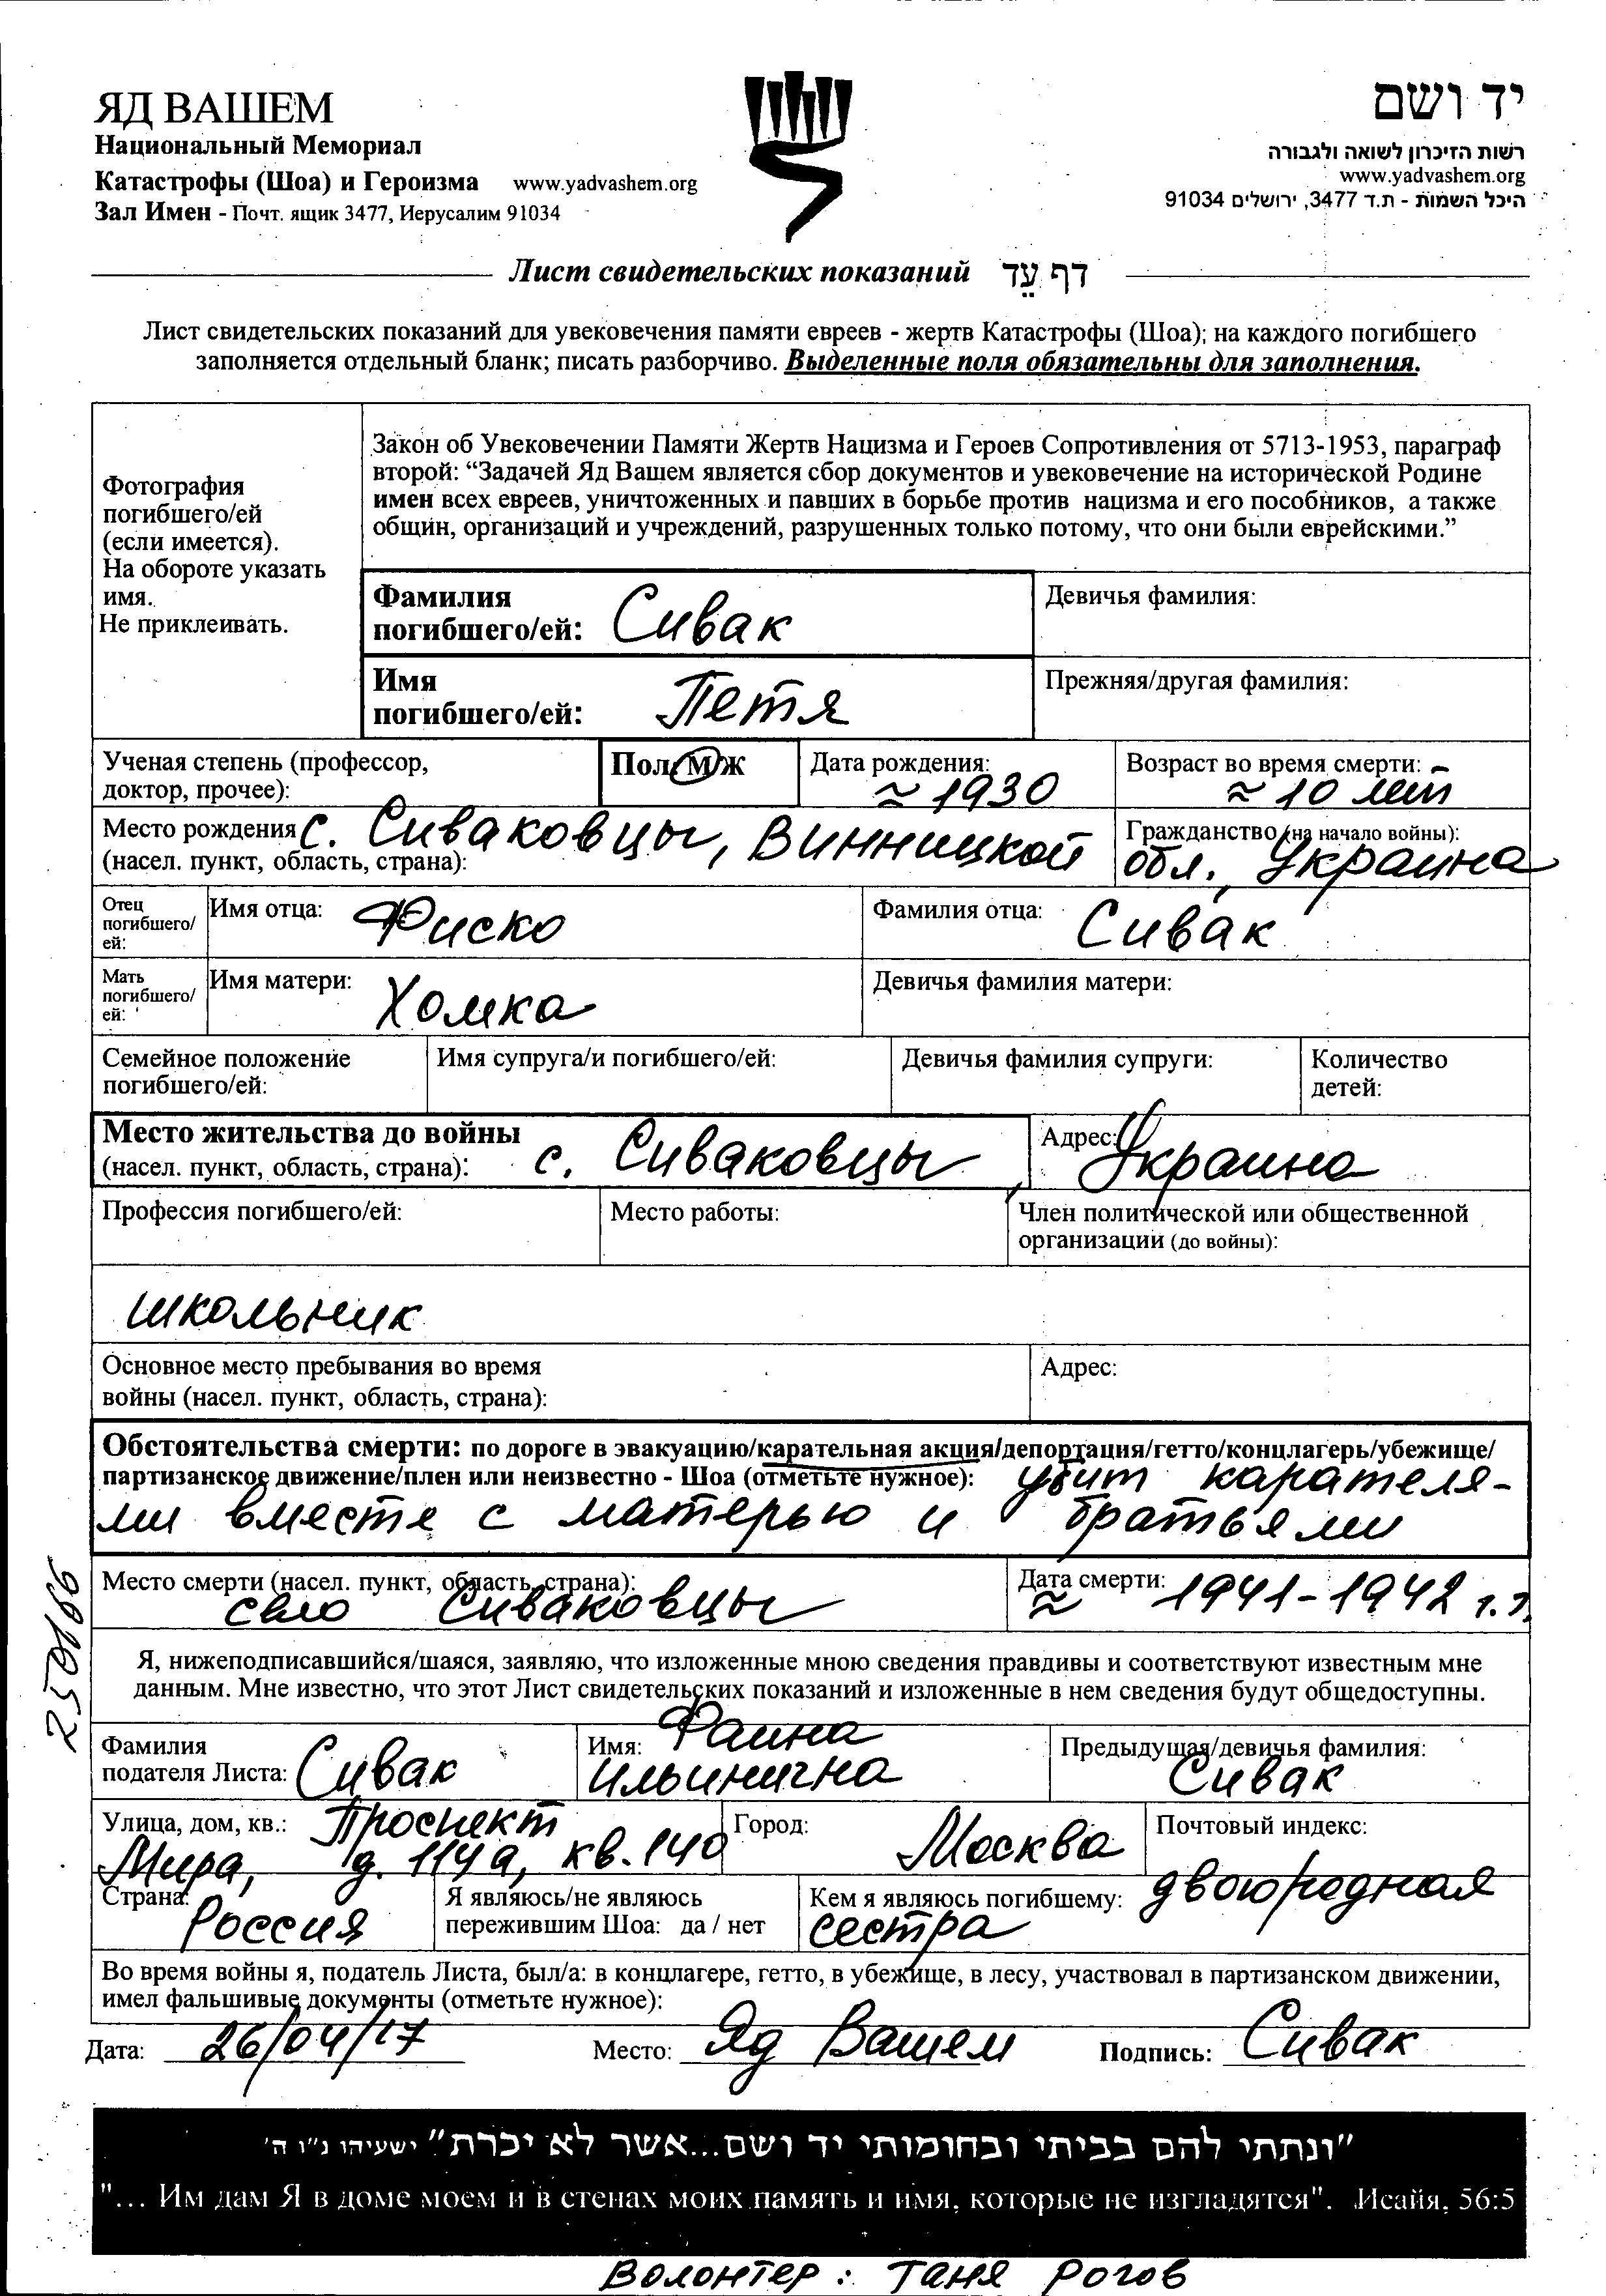 ЯД ВАШЕМ
Национальный Мемориал
Катастрофы (Шоа) и Героизма www.yadvashem.org
Зал Имен - Почт. ящик 3477, Иерусалим 91034
יד ושם
רשות הזיכרון לשואה ולגבורה
www.yadvashem.org
היכל השמות - ת.ד 3477, ירושלים 91034
Лист свидетельских показаний דף עֵד
Лист свидетельских показаний для увековечения памяти евреев - жертв Катастрофы (Шоа); на каждого погибшего
заполняется отдельный бланк; писать разборчиво. Выделенные поля обязательны для заполнения.
Фотография
погибшего/ей
(если имеется).
На обороте указать
имя.
Не приклеивать.
Закон об Увековечении Памяти Жертв Нацизма и Героев Сопротивления от 5713-1953, параграф
второй: “Задачей Яд Вашем является сбор документов и увековечение на исторической Родине
имен всех евреев, уничтоженных и павших в борьбе против нацизма и его пособников, а также
общин, организаций и учреждений, разрушенных только потому, что они были еврейскими.”
Фамилия
погибшего/ей: Сивак
Девичья фамилия:
Имя
погибшего/ей: Петя
Прежняя/другая фамилия:
Ученая степень (профессор,
доктор, прочее):
Пол: М/Ж
Дата рождения:
≈ 1930
Возраст во время смерти:
≈ 10 лет
Место рождения с. Сиваковцы, Винницкой
(насел. пункт, область, страна):
Гражданство (на начало войны):
обл., Украина
Отец
погибшего/
ей:
Имя отца: Фиско
Фамилия отца: Сивак
Мать
погибшего/
ей:
Имя матери: Хомка
Девичья фамилия матери:
Семейное положение
погибшего/ей:
Имя супруга/и погибшего/ей:
Девичья фамилия супруги:
Количество
детей:
Место жительства до войны
(насел. пункт, область, страна): с. Сиваковцы,
Адрес: Украина
Профессия погибшего/ей:
Место работы:
Член политической или общественной
организации (до войны):
школьник
Основное место пребывания во время
войны (насел. пункт, область, страна):
Адрес:
Обстоятельства смерти: по дороге в эвакуацию/карательная акция/депортация/гетто/концлагерь/убежище/
партизанское движение/плен или неизвестно - Шоа (отметьте нужное): убит карателя-
ми вместе с матерью и братьями
Место смерти (насел. пункт, область, страна):
село Сиваковцы
Дата смерти:
≈ 1941-1942 г.г.
250166
Я, нижеподписавшийся/шаяся, заявляю, что изложенные мною сведения правдивы и соответствуют известным мне
данным. Мне известно, что этот Лист свидетельских показаний и изложенные в нем сведения будут общедоступны.
Фамилия
подателя Листа: Сивак
Имя: Фаина
Ильинична
Предыдущая/девичья фамилия:
Сивак
Улица, дом, кв.: Проспект
Мира, д. 114а, кв. 140
Город: Москва
Почтовый индекс:
Страна:
Россия
Я являюсь/не являюсь
пережившим Шоа: да / нет
Кем я являюсь погибшему: двоюродная
сестра
Во время войны я, податель Листа, был/а: в концлагере, гетто, в убежище, в лесу, участвовал в партизанском движении,
имел фальшивые документы (отметьте нужное):
Дата: 26/04/17 Место: Яд Вашем Подпись: Сивак
"ונתתי להם בביתי ובחומותי יד ושם...אשר לא יכרת" ישעיהו נ"ו ה'
"... Им дам Я в доме моем и в стенах моих память и имя, которые не изгладятся". Исайя, 56:5
Волонтер: Таня Рогов